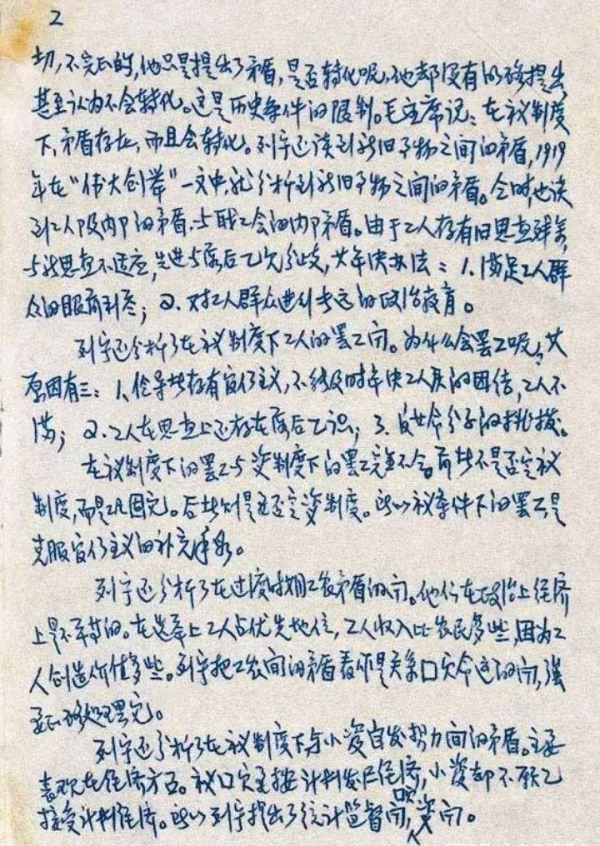 2
切,不完正的,他只是提出了矛盾,是否转化呢,他却没有明确提出
甚至认为不会转化。这是历史条件的限制。毛主席说:在衩制度
下,矛盾存在,而且会转化。列宁还谈到新旧事物之间的矛盾,1919
年在“伟大创举”一文中,就分析到新旧事物之间的矛盾。仝时,也谈
到工人阶级内部的矛盾,与职工会的内部矛盾。由于工人存有旧思想残余,
与新思想不适应,先进与落后之分歧,其解决办法:1.满足工人群
众的眼前利益;2.对工人群众进行长远的政治教育。
列宁还分析了在衩制度下工人的罢工问。为什么会罢工呢,其
原因有三:1、领导者存有官僚主义,不能及时解决工人的团结,工人不
满;2.工人在思想上还存在落后意识;3、反革命分子的挑拨。
在衩制度下的罢工与资制度下的罢工完全不仝。前者不是否定衩
制度,而是巩固它。后者则是要否定资制度。所以衩条件下的罢工是
克服官僚主义的补充手段。
列宁还分析了在过渡时期工农矛盾的问。他们在政治上经济
上是不平等的。在选举上工人占优先地位,工人收入比农民多些,因为工
人创造价值多些。列宁把工农间的矛盾看作是关系口家命运的问,强
正确处理它。
列宁还分析了在衩制度下,与小资自发势力间的矛盾。主要
表现在经济方面。衩口家要按计划发展经济,小资却不愿意
接受计划经济。所以列宁提出了统计监督问,资问。